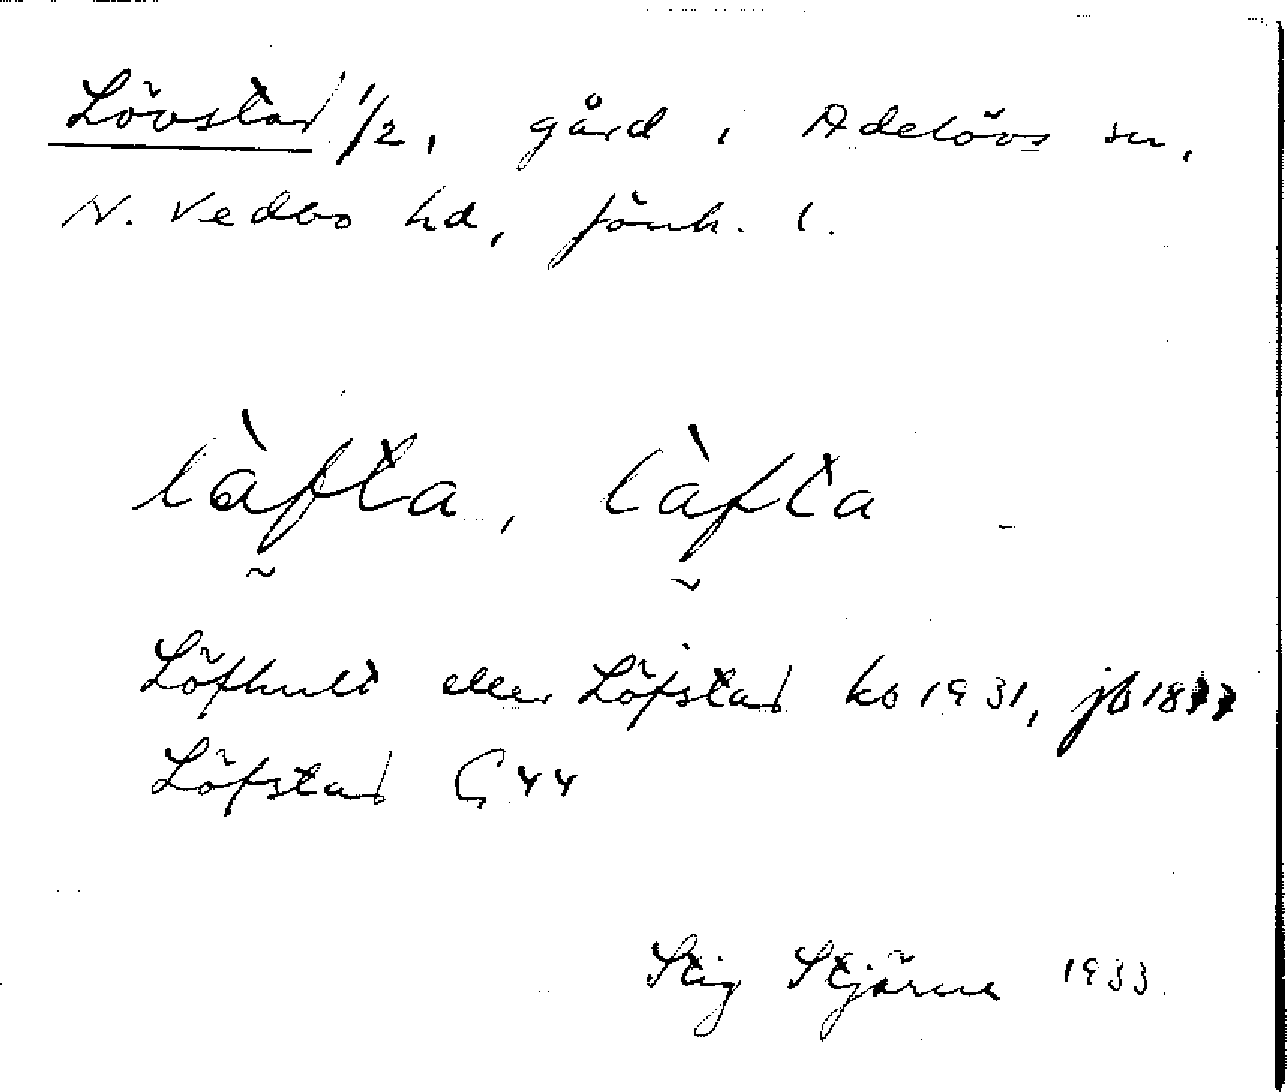 Lövstad 1/2, gård i Adelövs sn,
N. Vedbo hd, Jönk. l.
làfta, làfta
Löfhult eller Löfstad kb 1931, jb 1877
Löfstad G 44
Stig Stjärne 1933